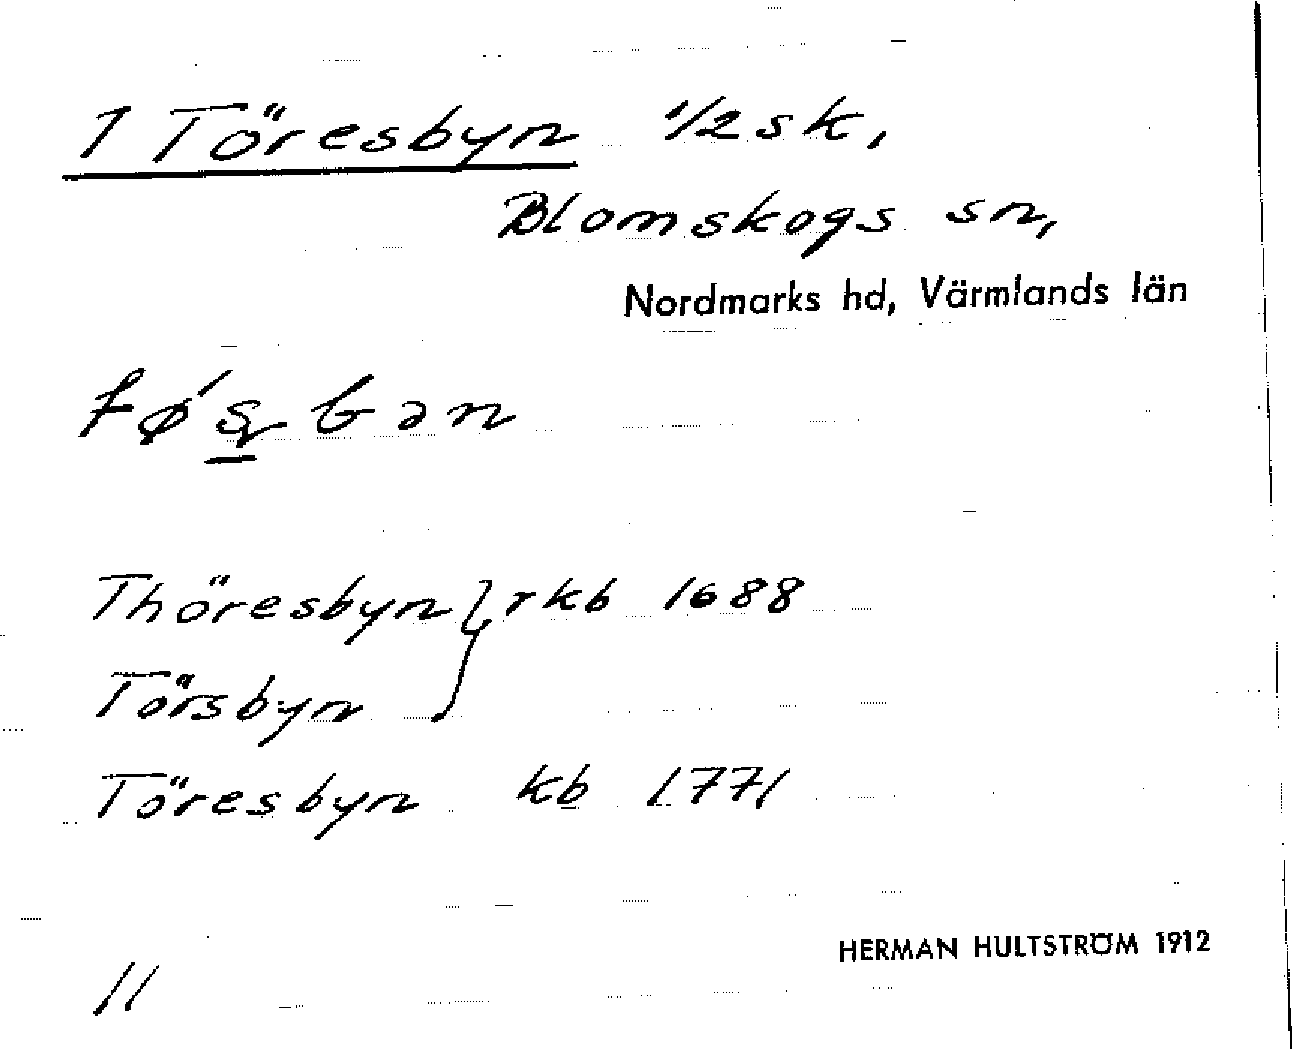 1 Töresbyn 1/2 sk,
Blomskogs sn,
Nordmarks hd, Värmlands län
Thöresbyn } rkb 1688
Törsbyn
Töresbyn kb 1771
HERMAN HULTSTRÖM 1912
11